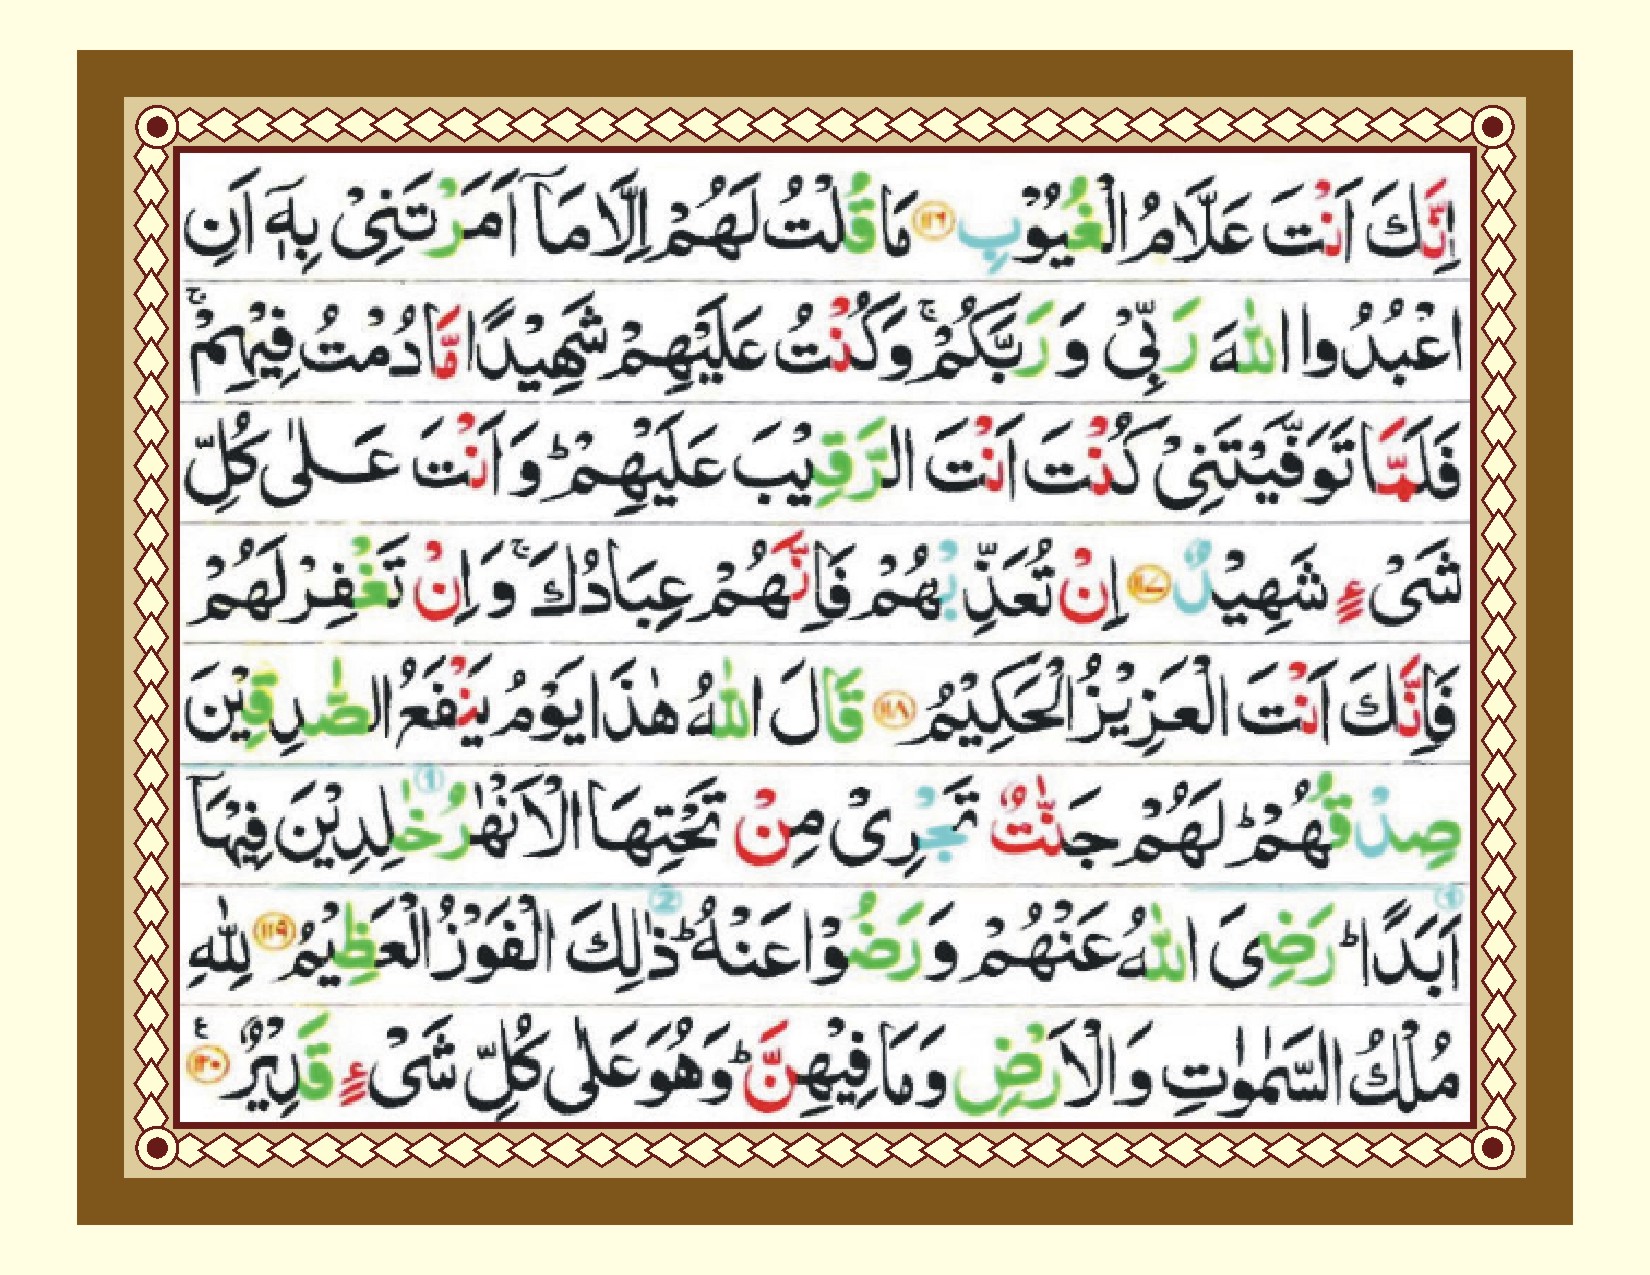 اِنَّكَ اَنْتَ عَلَّامُ الْغُيُوْبِ ﴿۱۱۶﴾ مَا قُلْتُ لَهُمْ اِلَّا مَاۤ اَمَرْتَنِیْ بِهٖۤ اَنِ
اعْبُدُوا اللّٰهَ رَبِّیْ وَ رَبَّكُمْ ۚ وَكُنْتُ عَلَیْهِمْ شَهِیْدًا مَّا دُمْتُ فِیْهِمْ ۚ
فَلَمَّا تَوَفَّیْتَنِیْ كُنْتَ اَنْتَ الرَّقِیْبَ عَلَیْهِمْ ؕ وَ اَنْتَ عَلٰی كُلِّ
شَیْءٍ شَهِیْدٌ ﴿۱۱۷﴾ اِنْ تُعَذِّبْهُمْ فَاِنَّهُمْ عِبَادُكَ ۚ وَ اِنْ تَغْفِرْ لَهُمْ
فَاِنَّكَ اَنْتَ الْعَزِیْزُ الْحَكِیْمُ ﴿۱۱۸﴾ قَالَ اللّٰهُ هٰذَا یَوْمُ یَنْفَعُ الصّٰدِقِیْنَ
صِدْقُهُمْ ؕ لَهُمْ جَنّٰتٌ تَجْرِیْ مِنْ تَحْتِهَا الْاَنْهٰرُ خٰلِدِیْنَ فِیْهَاۤ
اَبَدًا ؕ رَضِیَ اللّٰهُ عَنْهُمْ وَ رَضُوْا عَنْهُ ؕ ذٰلِكَ الْفَوْزُ الْعَظِیْمُ ﴿۱۱۹﴾ لِلّٰهِ
مُلْكُ السَّمٰوٰتِ وَ الْاَرْضِ وَ مَا فِیْهِنَّ ؕ وَهُوَ عَلٰی كُلِّ شَیْءٍ قَدِیْرٌ ﴿۱۲۰﴾ ع